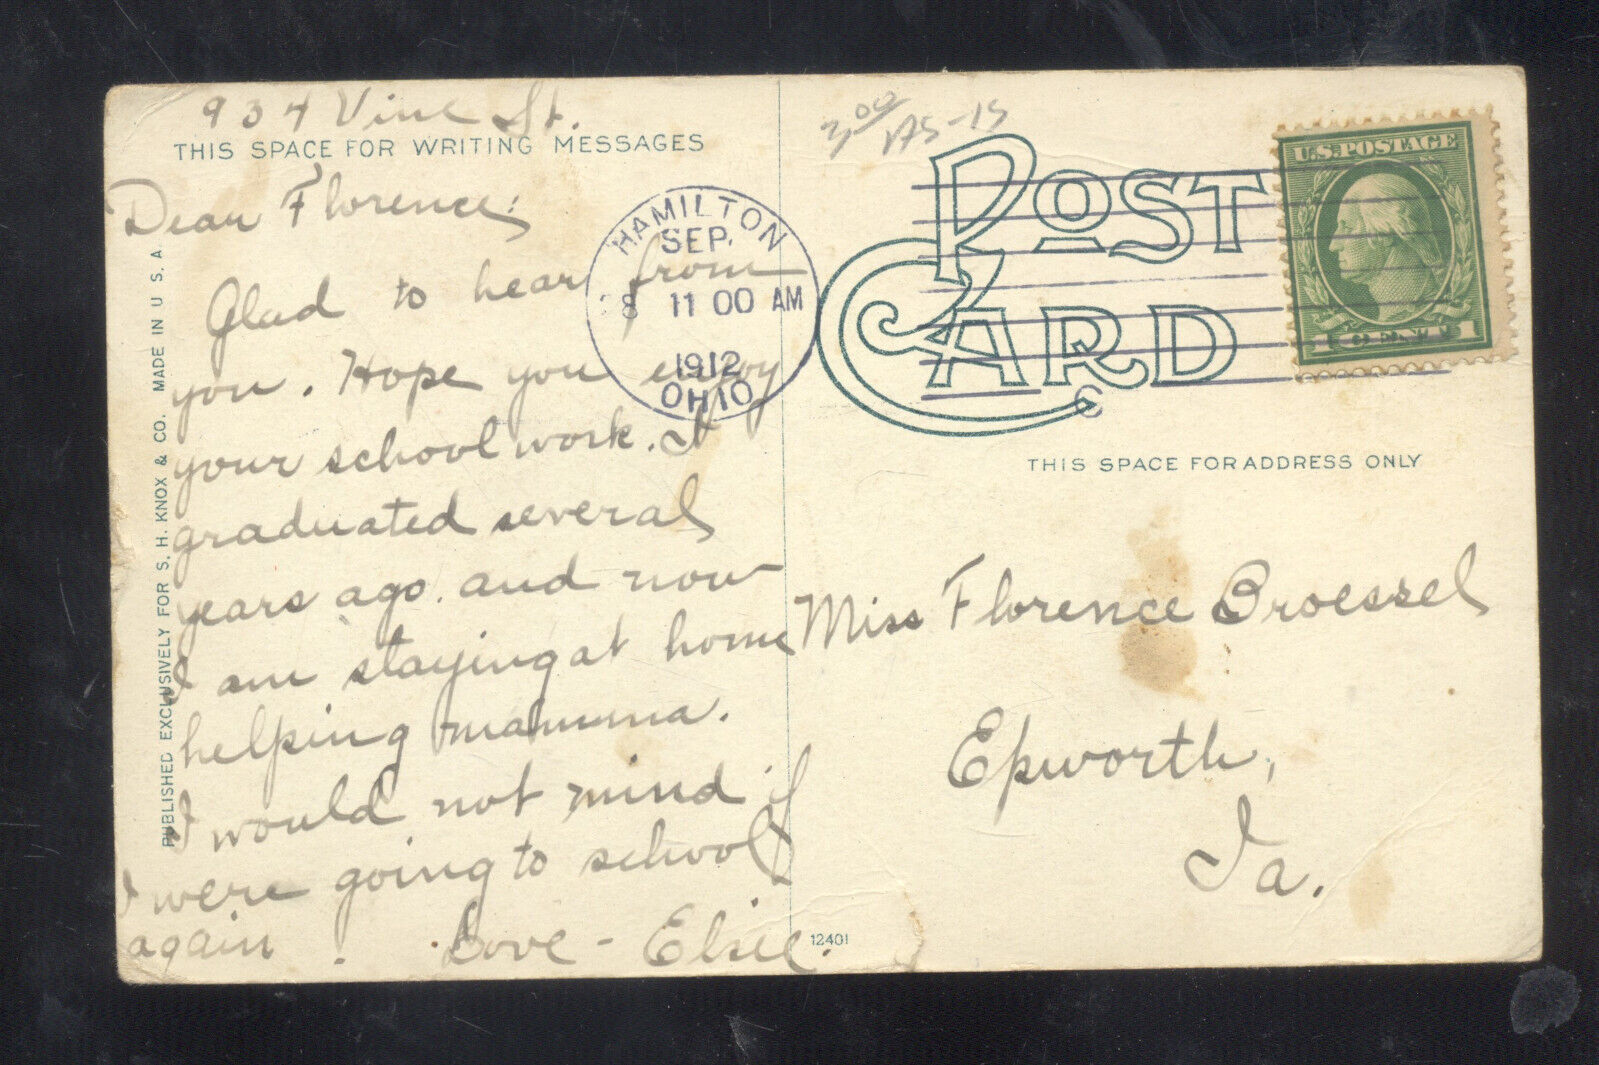 934 Vine St.
THIS SPACE FOR WRITING MESSAGES
Dear Florence;
Glad to hear from
you. Hope you enjoy
your school work. I
graduated several
years ago. and now
I am staying at home
helping mamma.
I would not mind if
I were going to school
again. Love - Elsie.
PUBLISHED EXCLUSIVELY FOR S. H. KNOX & CO. MADE IN U S. A.
HAMILTON
SEP.
8 11 00 AM
1912
OHIO
3.00
POST
CARD
U.S. POSTAGE
1 CENT 1
THIS SPACE FOR ADDRESS ONLY
Miss Florence Broessel
Epworth,
Ia.
12401